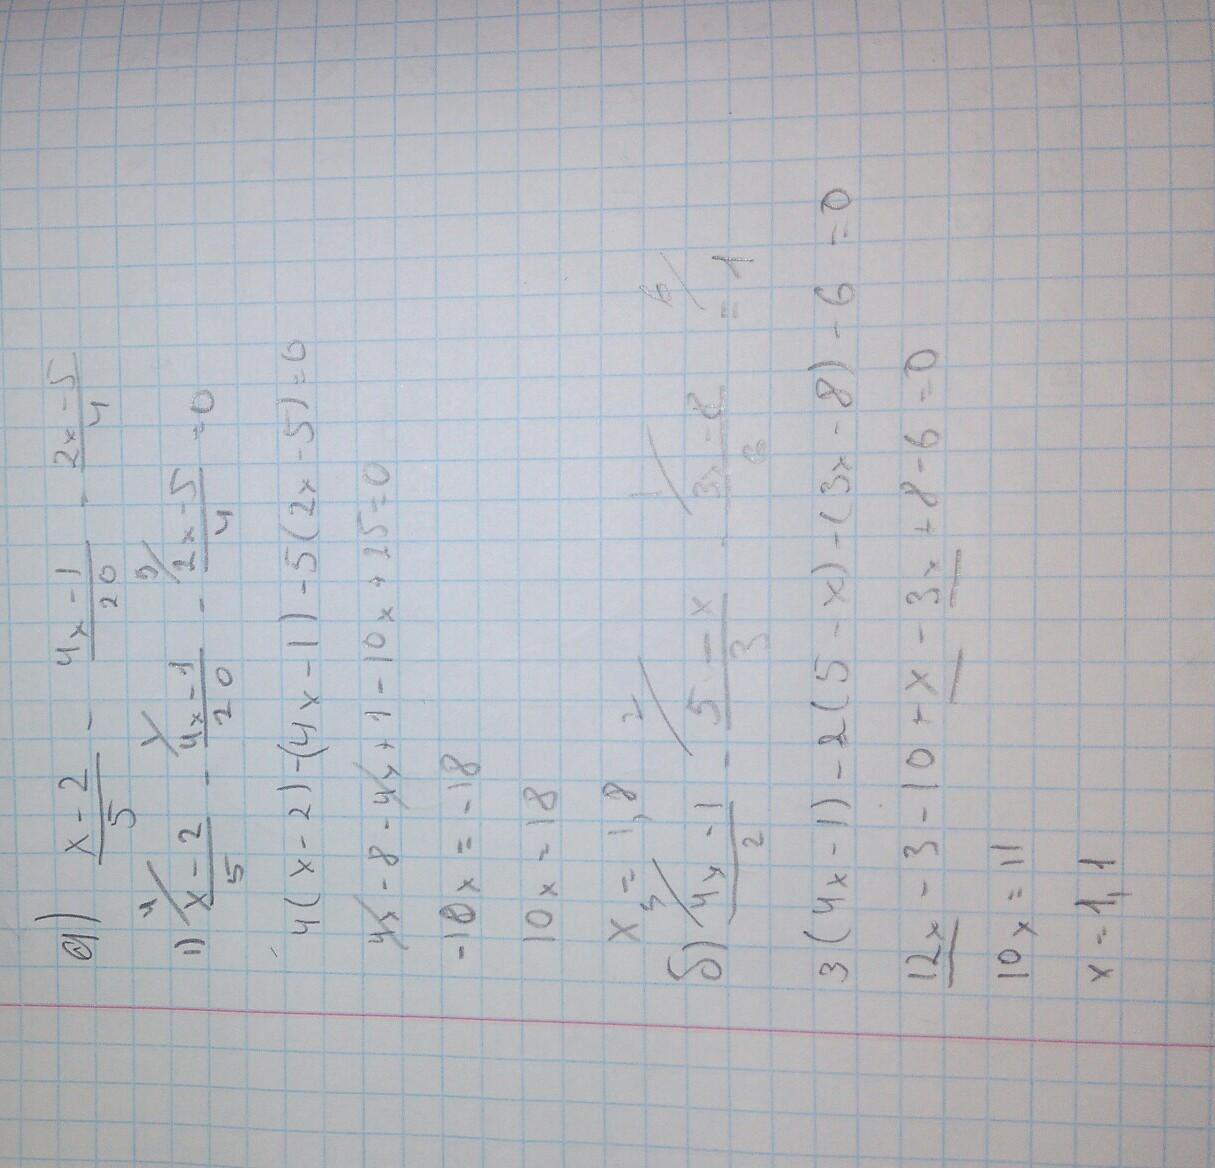 а) x-2/5 - 4x-1/20 - 2x-5/4
1) 4/ x-2/5 - 1/ 4x-1/20 - 5/ 2x-5/4 =0
4(x-2)-(4x-1)-5(2x-5)=0
4x-8-4x+1-10x+25=0
-10x=-18
10x=18
x=1,8
б) 3/ 4x-1/2 - 2/ 5-x/3 - 1/ 3x-8/6 = 6/ 1
3(4x-1)-2(5-x)-(3x-8)-6=0
12x-3-10+x-3x+8-6=0
10x=11
x=1,1